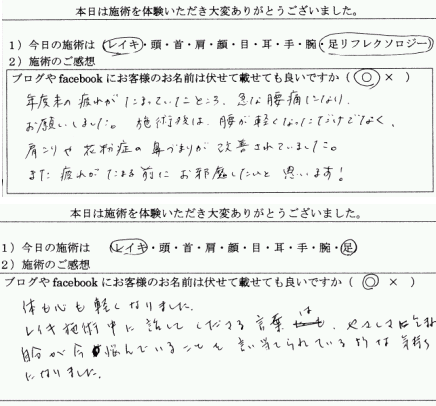 本日は施術を体験いただき大変ありがとうございました。
1）今日の施術は（レイキ・頭・首・肩・顔・目・耳・手・腕・足リフレクソロジー）
2）施術のご感想
ブログやfacebookにお客様のお名前は伏せて載せても良いですか（ ○ × ）
年度末の疲れがたまっていたところ、急な腰痛になり、
お願いしました。施術後は、腰が軽くなっただけでなく、
肩こりや花粉症の鼻づまりが改善されていました。
また疲れがたまる前にお邪魔したいと思います！
本日は施術を体験いただき大変ありがとうございました。
1）今日の施術は（レイキ・頭・首・肩・顔・目・耳・手・腕・足）
2）施術のご感想
ブログやfacebookにお客様のお名前は伏せて載せても良いですか（ ○ × ）
体も心も軽くなりました。
レイキ施術中に話して下さる言葉は、やさしさに
自分が今悩んでいることを言い当てられているような気持ち
になりました。